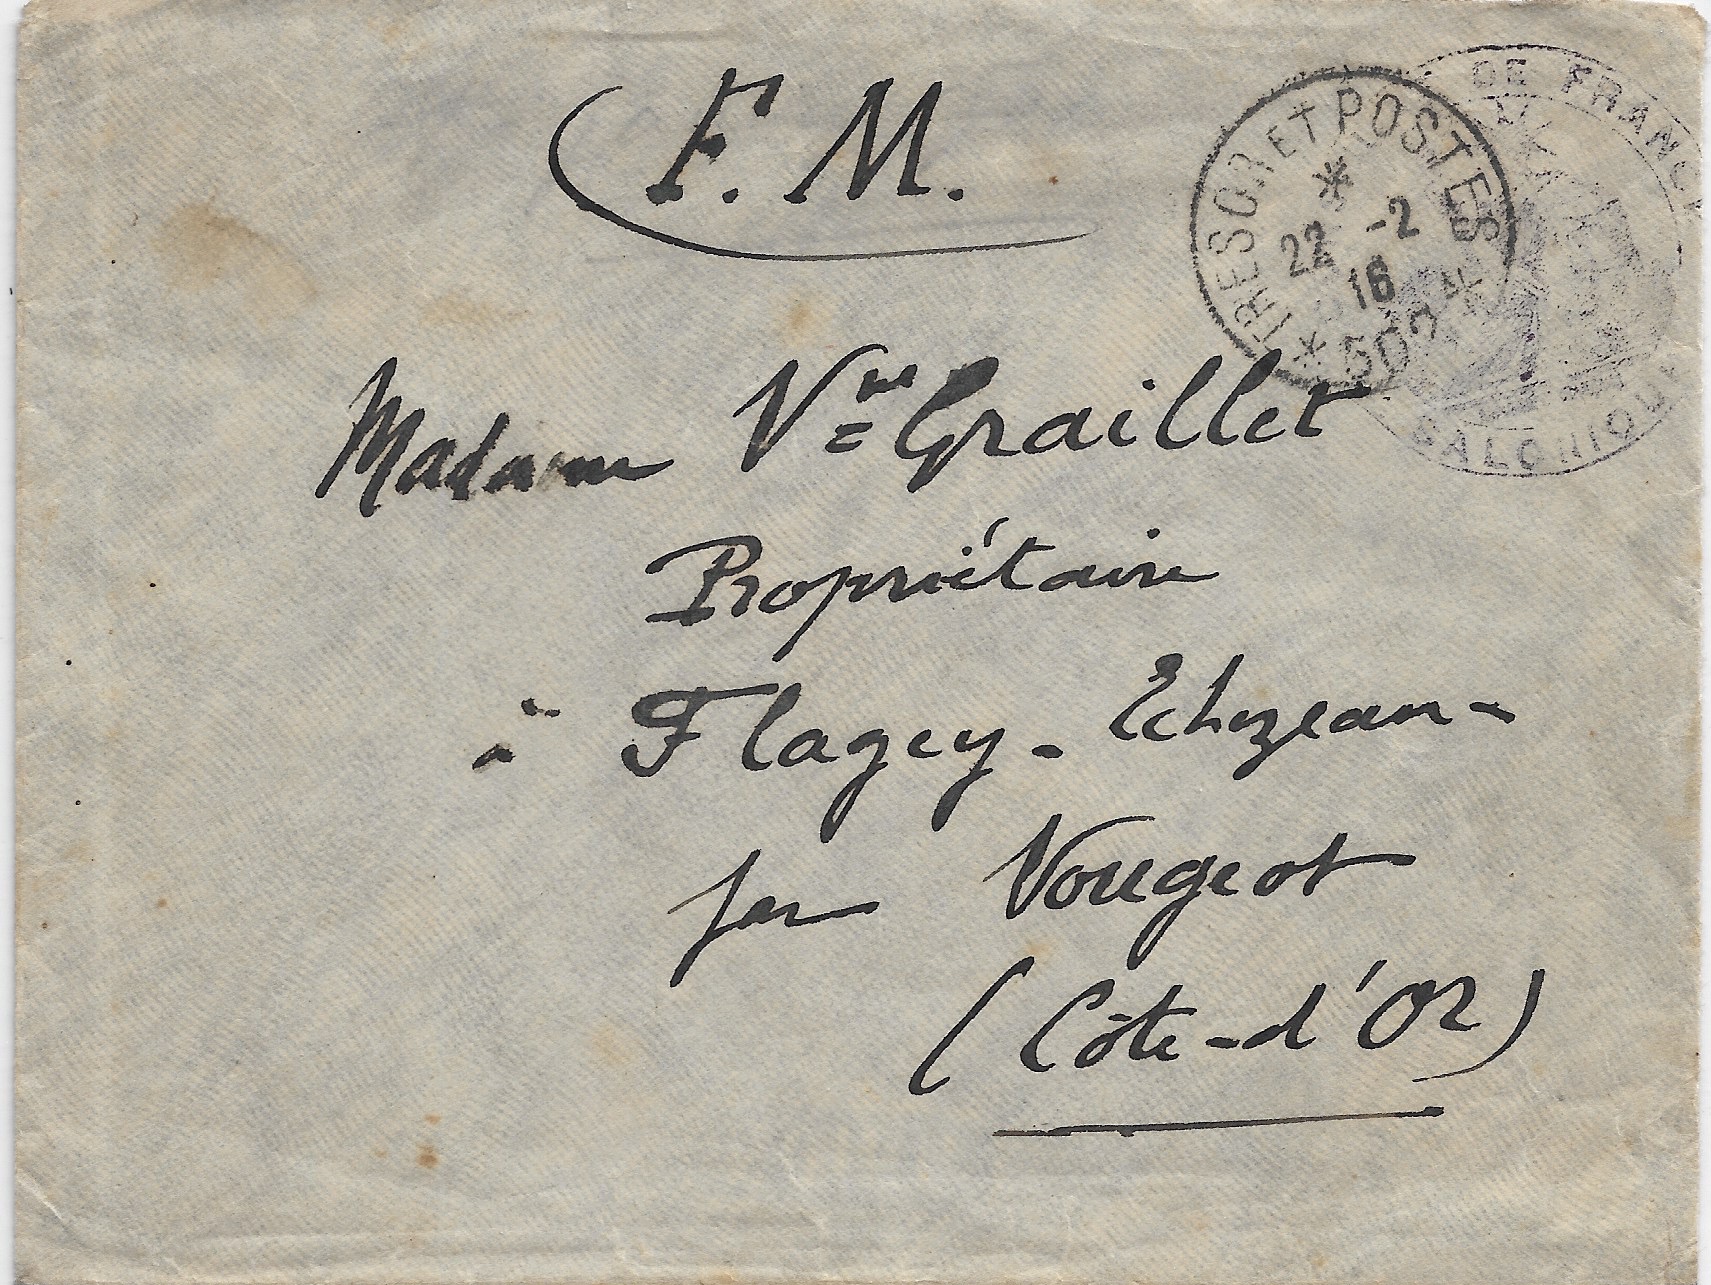 F. M.
TRESOR ET POSTES
22 -2
16
* 502 *
DE FRANCE
SALONIQUE
Madame Vve Graillet
Propriétaire
à Flagey-Echezeau-
par Vougeot
(Côte-d'Or)